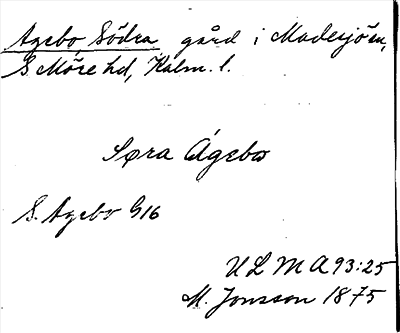 Agebo Södra gård i Madesjö sn,
S Möre hd, Kalm. l.
Søra Ágebo
S. Agebo G16
ULMA 93:25
M. Jonsson 1875